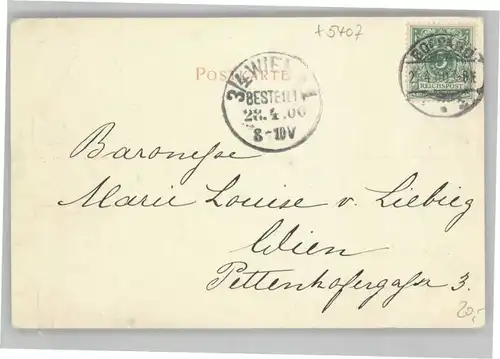 +5407
POSTKARTE
3/4 WIEN 1
BESTELLT
28.4.00
8-10V
BOPPARD
5
REICHSPOST
Baronesse
Marie Louise v. Liebieg
Wien
Pettenhofergasse 3.
20,-